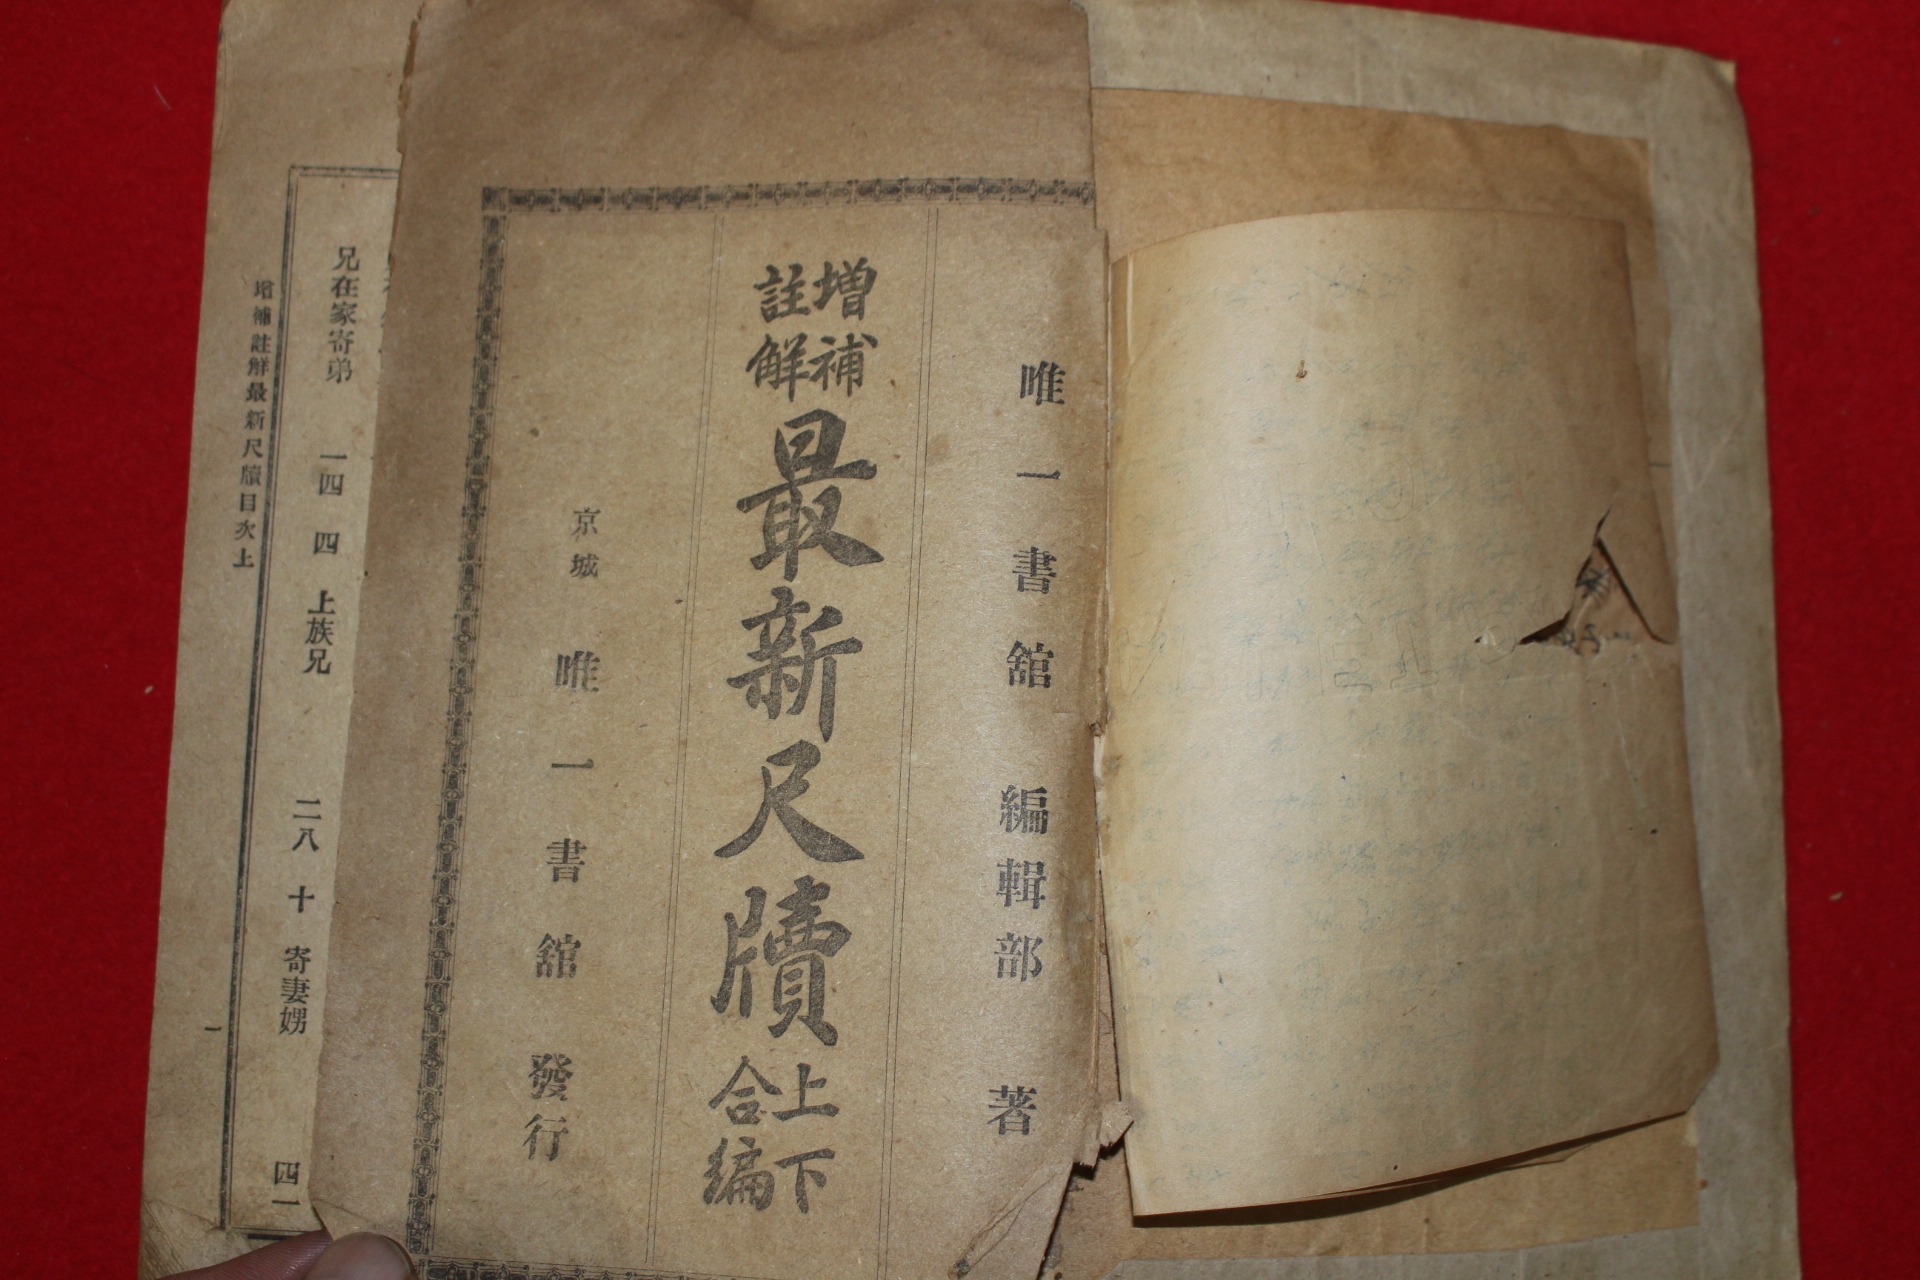 唯一書舘 編輯部 著
增補
註解
最新尺牘
上下
合編
京城 唯一書舘 發行
兄在家寄弟 一四 四 上族兄 二八 十 寄妻娚 四一
增補註解最新尺牘目次上 一